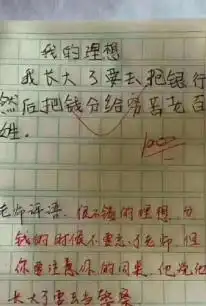 我的理想
我长大了要去把银行
然后把钱分给穷苦老百
姓。
100
老师评语、很不错的理想、分
钱的时候不要忘了老师、但
你要注意你的同桌、他说他
长大了要去当警察